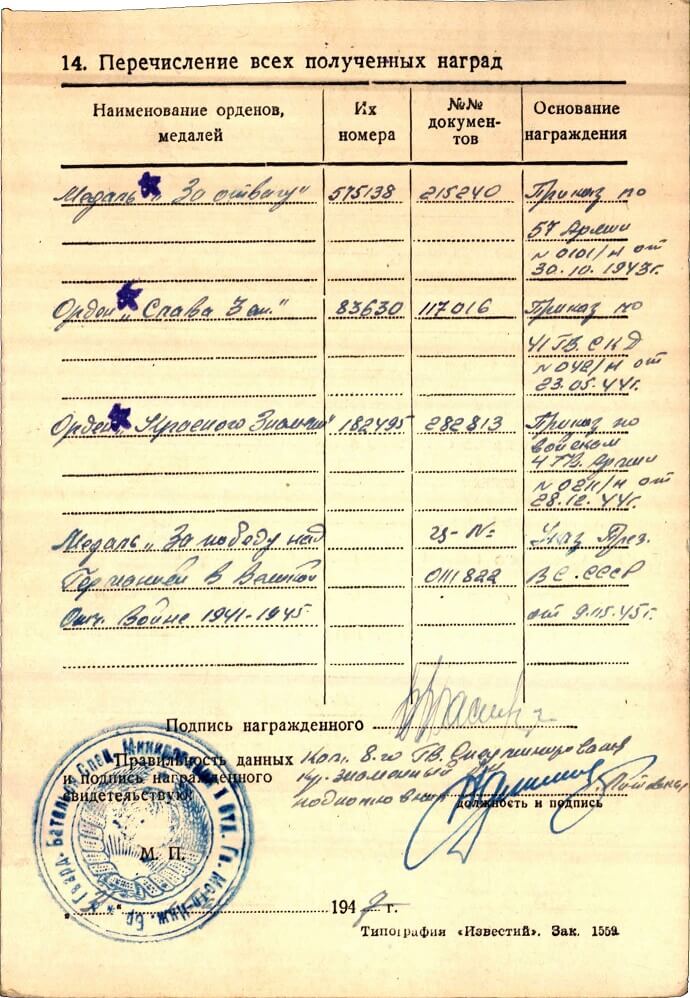 14. Перечисление всех полученных наград
Наименование орденов,
медалей
Их
номера
№№
докумен-
тов
Основание
награждения
Медаль „За отвагу" 575138 215240 Приказ по
57 Армии
N 0101/н от
30.10.1943г.
Орден „Слава 3 ст." 83630 117016 Приказ по
41 ГВ. СКД
N 042/н от
23.05.44г.
Орден „Красного Знамени" 182495 282813 Приказ по
войскам
4 ГВ. Армии
N 0211/н от
28.12.44г.
Медаль „За победу над Указ През.
Германией в Великой 0111822 ВС. СССР
Отч. Войне 1941-1945 от 9.05.45г.
Подпись награжденного
Правильность данных Ком. 8-го ГВ.
и подпись награжденного
свидетельствую:
должность и подпись
М. П.
Гвард. Батальон Спец. Минирования
194 7 г.
Типография «Известий». Зак. 1559.